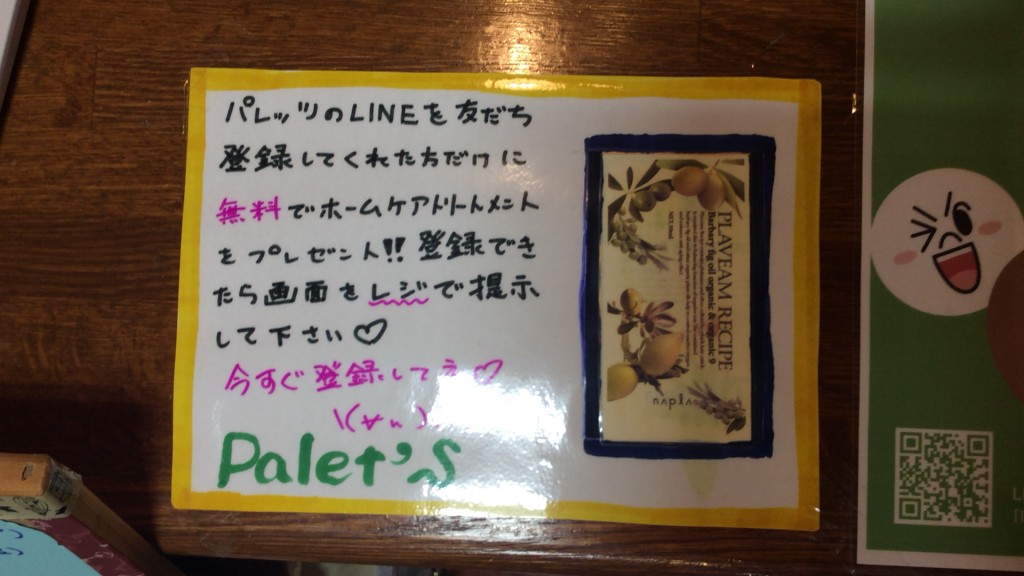 パレッツのLINEを友だち
登録してくれた方だけに
無料でホームケアトリートメント
をプレゼント!! 登録でき
たら画面をレジで提示
して下さい♡
今すぐ登録してネ♡
Palet's
PLAVEAM RECIPE
Barbary fig oil organic & organic 9
napla